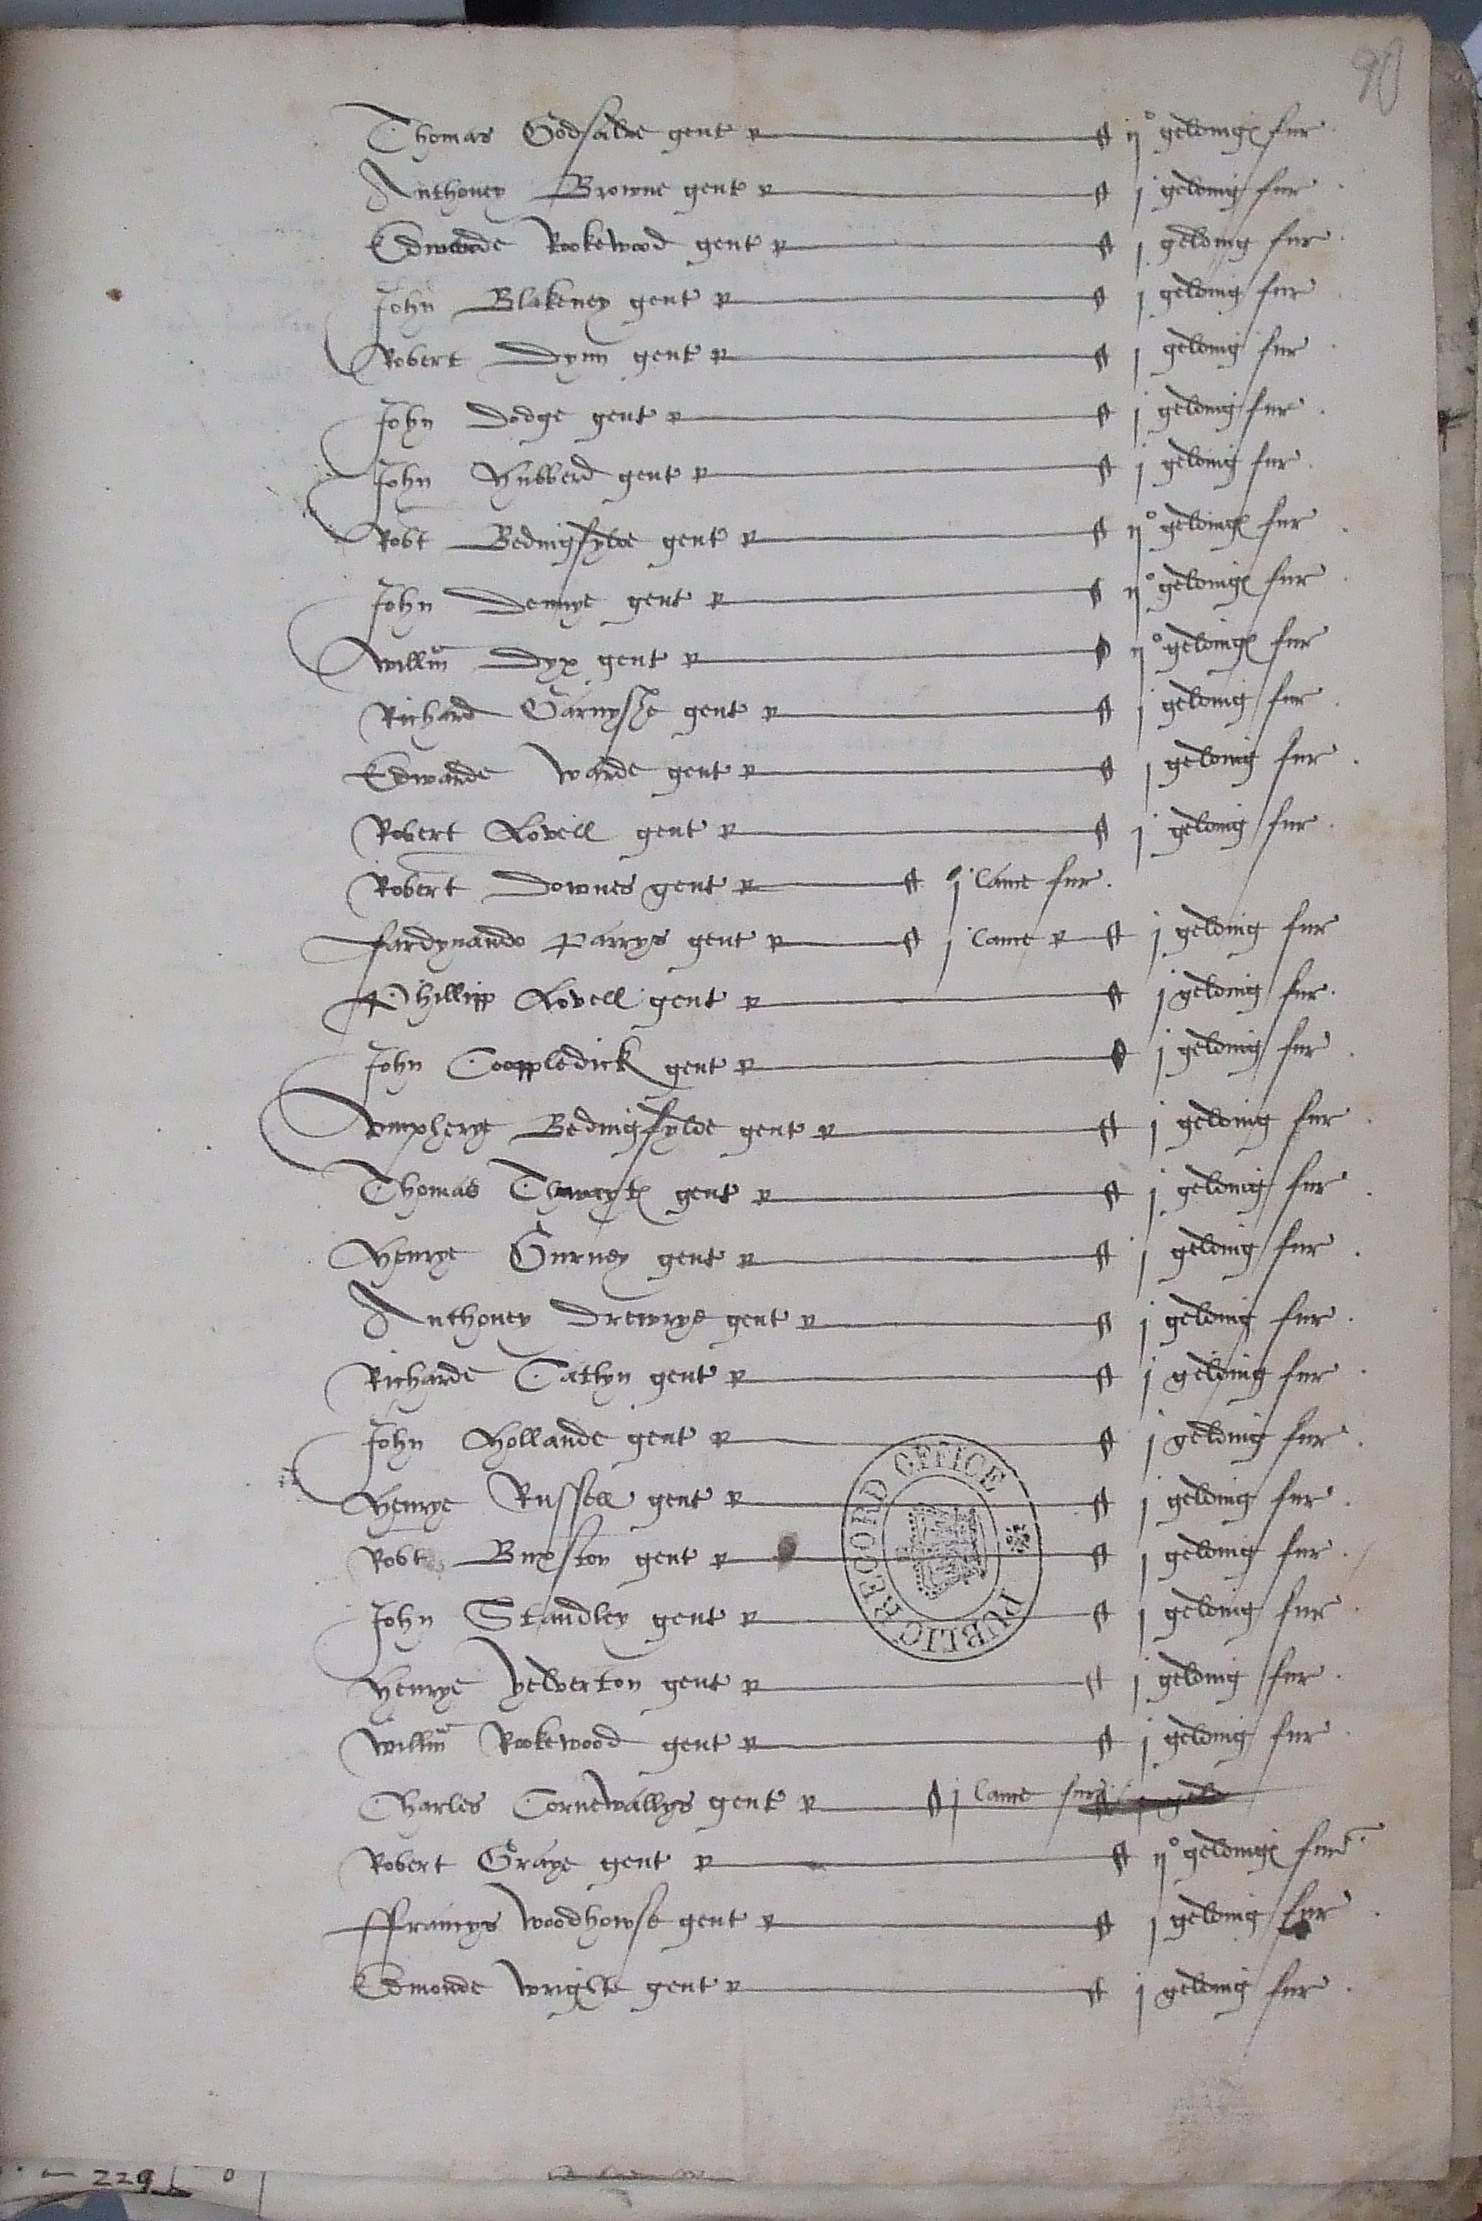 90
Thomas Godsalve gent ij° geldings fur
Anthoney Browne gent j gelding fur
Edwarde Rookewood gent j gelding fur
John Blakeney gent j gelding fur
Robert Dynn gent j gelding fur
John Dodge gent j gelding fur
John Hubberd gent j gelding fur
Robt Bedingfylde gent ij° geldings fur
John Dennye gent ij° geldings fur
Willm Dyx gent ij° geldings fur
Richard Garnyshe gent j gelding fur
Edwarde Warde gent j gelding fur
Robert Lovell gent j gelding fur
Robert Downes gent j lance fur
Fardynando Parrys gent j lance j gelding fur
Phillipp Lovell gent j gelding fur
John Coppledick gent j gelding fur
Umpherye Bedingfylde gent j gelding fur
Thomas gent j gelding fur
Henrye Gurney gent j gelding fur
Anthoney Drewrye gent j gelding fur
Richarde Catlyn gent j gelding fur
John Hollande gent j gelding fur
Henrye Russell gent j gelding fur
Robt Buxston gent j gelding fur
John Standley gent j gelding fur
Henrye Yelverton gent j gelding fur
Willm Rookewood gent j gelding fur
Charles Cornewallys gent j lance fur
Robert Graye gent ij° geldings fur
ffrancys Woodhowse gent j gelding fur
Edmonde Wrighte gent j gelding fur
PUBLIC RECORD OFFICE
229